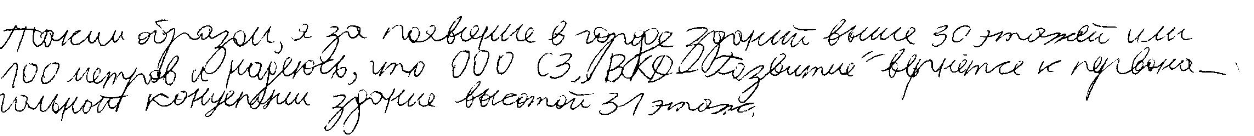 Таким образом, я за появление в городе зданий выше 30 этажей или
100 метров и надеюсь, что ООО СЗ „ВКД-Развитие" вернётся к первона-
чальной концепции здание высотой 31 этаж.